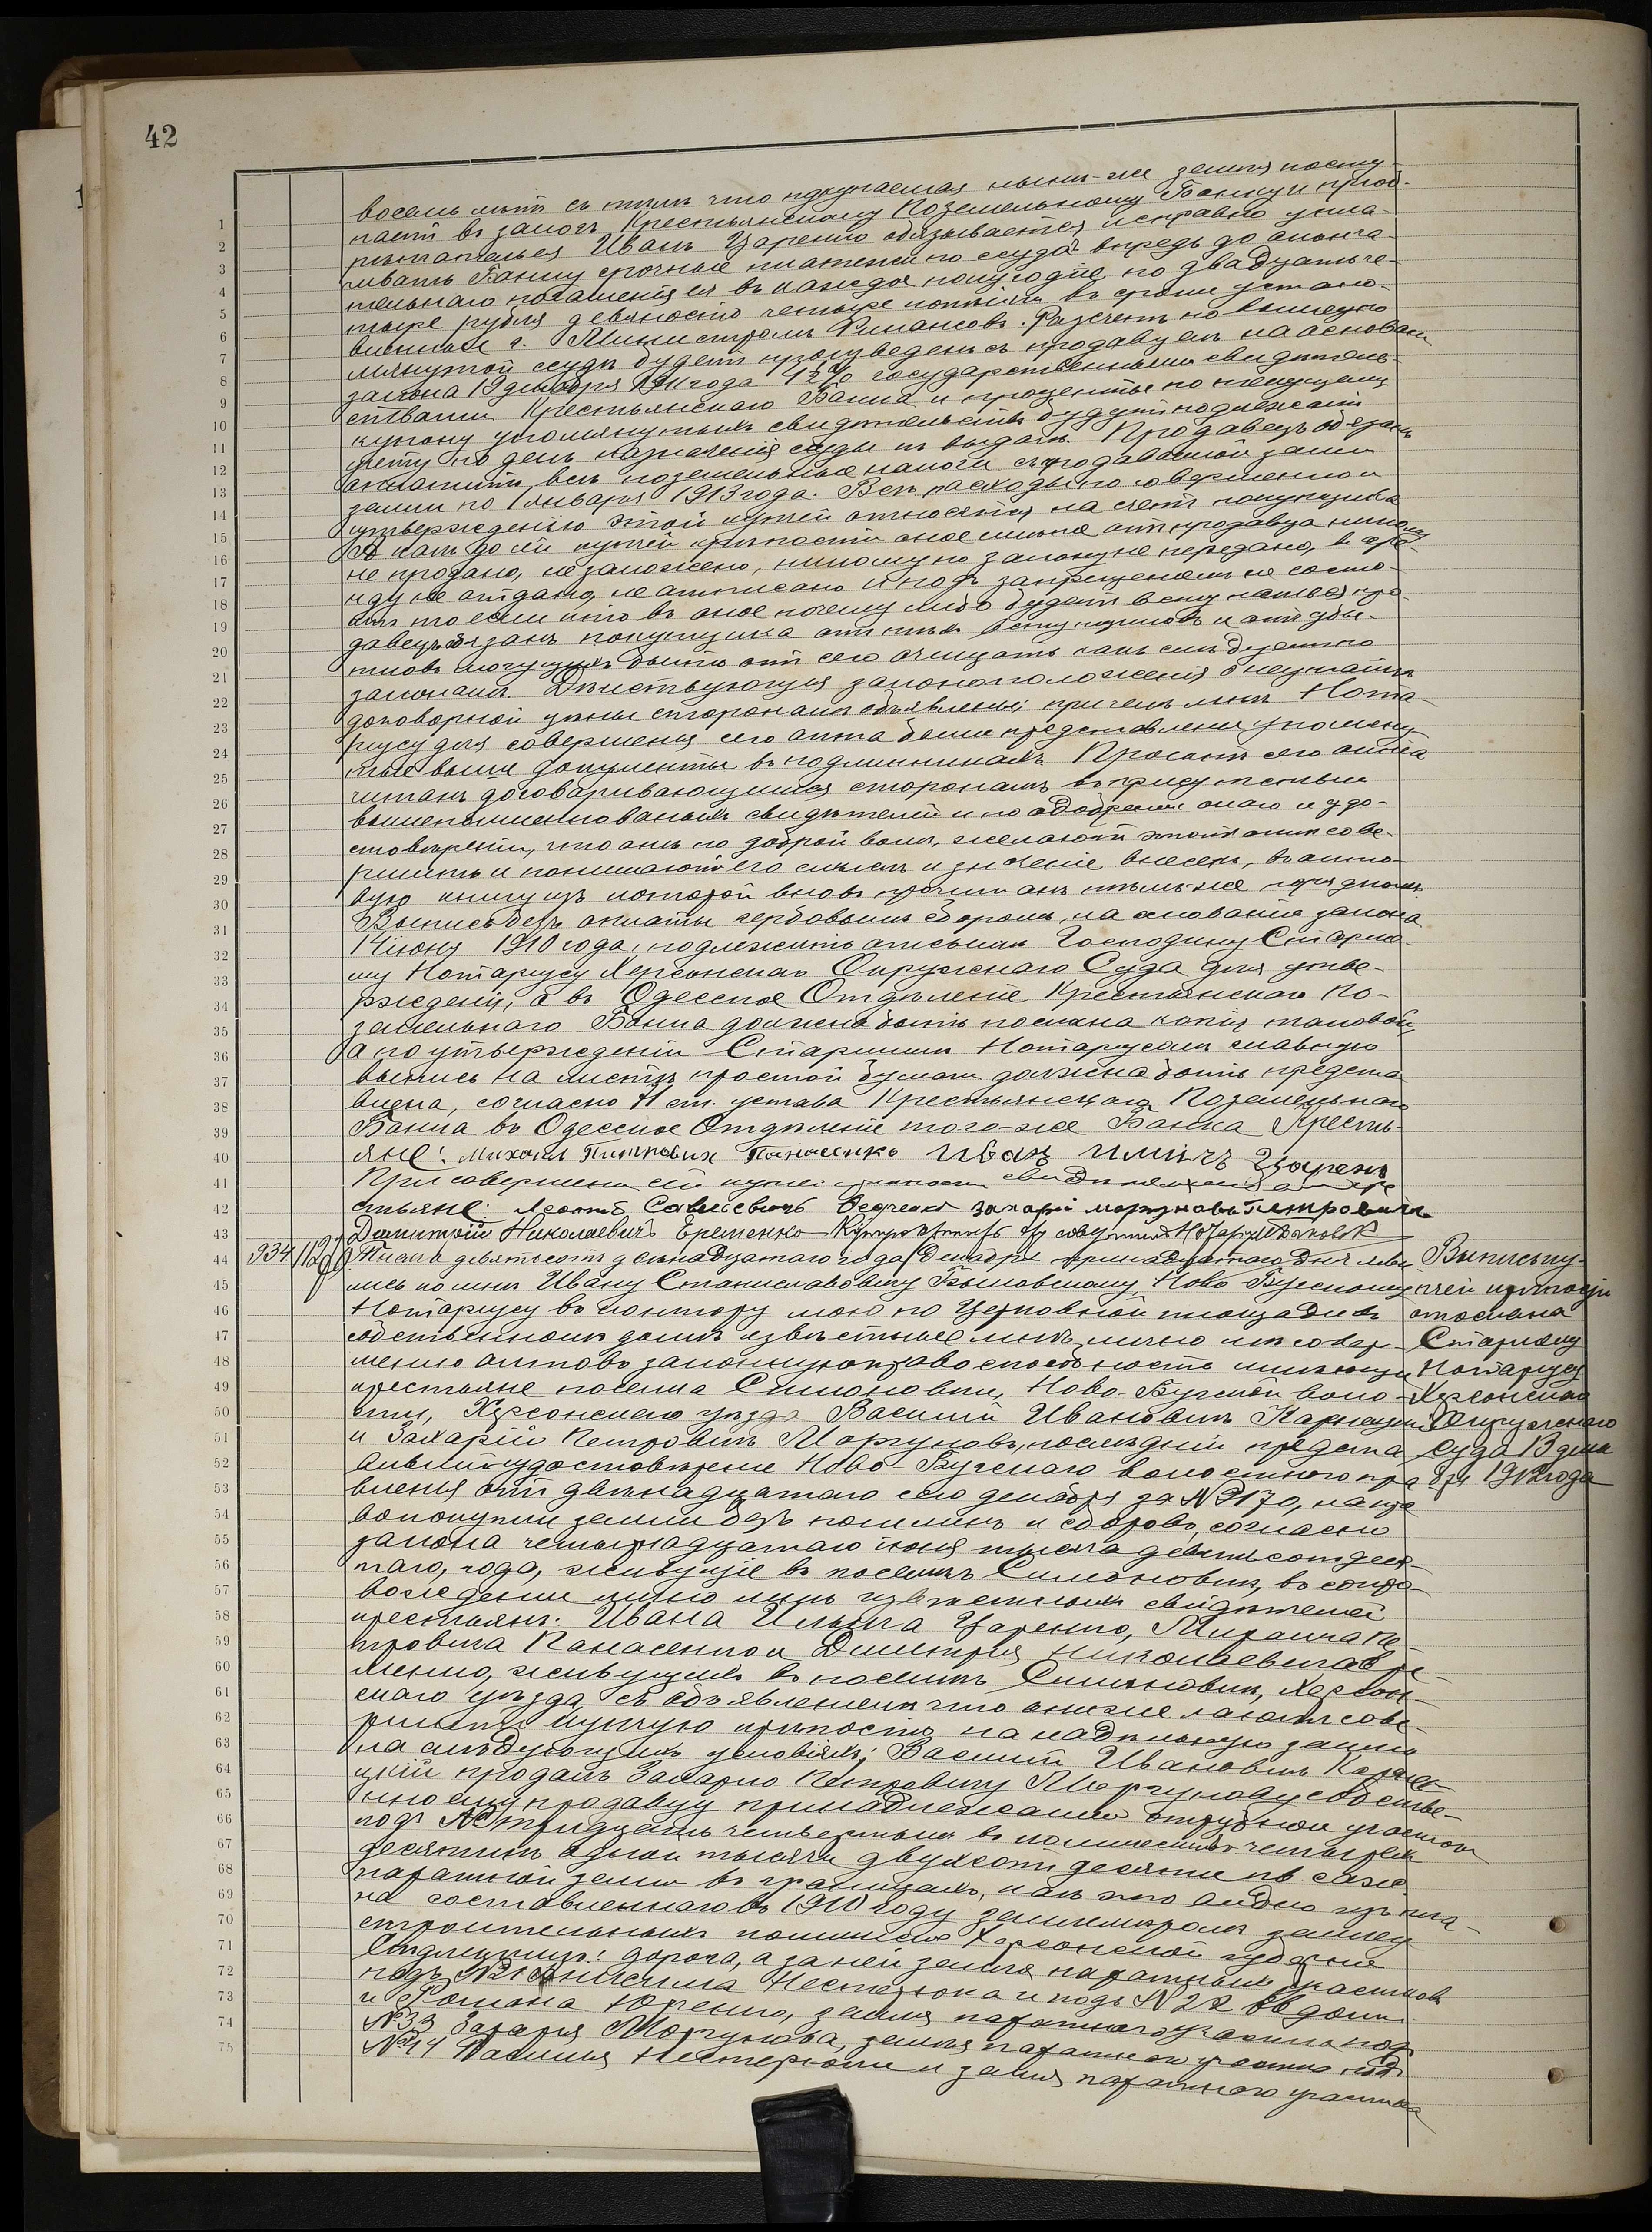 42
восемь лѣтъ съ тѣмъ что покупаемая нынѣ-же земля посту-
паетъ въ залогъ Крестьянскому Поземельному Банку и пріоб-
рѣтатель Иванъ Царенко обязывается исправно упла-
чивать Банку срочные платежи по ссудѣ впредь до оконча-
тельнаго погашенія ея въ каждое полугодіе по двадцать че-
тыре рубля девяносто четыре копѣйки въ сроки устано-
вленные г. Министромъ Финансовъ. Разсчетъ по вышеупо-
мянутой ссудѣ будетъ произведенъ съ продавцемъ на основаніи
закона 19 декабря 1911 года 4½% государственными свидѣтель-
ствами Крестьянскаго Банка и проценты по текущему
купону упомянутыхъ свидѣтельствъ будутъ подлежать
учету по день назначенія ссуды къ выдачѣ. Продавецъ обязанъ
оплатить всѣ поземельные налоги съ продаваемой имъ
земли по 1 января 1913 года. Всѣ расходы по совершенію и
утвержденію этой купчей относятся на счетъ покупщика
А какъ до сей купчей крѣпости оное имѣніе отъ продавца никому
не продано, не заложено, никому по закону не передано, въ аре-
нду не отдано, не отписано и подъ запрещеніемъ не состо-
итъ то если кто въ оное почему либо будетъ вступаться про-
давецъ обязанъ покупщика отъ тѣхъ вступщиковъ и отъ убы-
тковъ могущихъ быть отъ сего очищать какъ слѣдуетъ по
законамъ. Дѣйствующія законоположенія о неуказаніи
договорной цѣны сторонамъ объявлены; причемъ мнѣ Нота-
ріусу для совершенія сего акта были представлены упомяну-
тые выше документы въ подлинникахъ. Проектъ сего акта
читанъ договаривающимся сторонамъ въ присутствіи
вышепоименованныхъ свидѣтелей и по одобреніи онаго и удо-
стовѣреніи, что они по доброй волѣ, желаютъ этотъ актъ сове-
ршить и понимаютъ его смыслъ и значеніе внесенъ, въ акто-
вую книгу изъ которой вновь прочитанъ тѣмъ-же порядкомъ.
Выпись безъ оплаты гербовымъ сборомъ, на основаніи закона
14 іюня 1910 года, подлежитъ отсылкѣ Господину Старше-
му Нотаріусу Херсонскаго Окружнаго Суда для утве-
ржденія, а въ Одесское Отдѣленіе Крестьянскаго По-
земельнаго Банка должна быть послана копія таковой,
а по утвержденіи Старшимъ Нотаріусомъ главную
выпись на листѣ простой бумаги должна быть предста-
влена, согласно 71 ст. устава Крестьянскаго Поземельнаго
Банка въ Одесское Отдѣленіе того-же Банка Кресть-
яне: Михаилъ Питровичъ Панасенко Иванъ Иличъ Царенк
При совершеніи сей купчей крѣпости свидѣтелями были кре-
стьяне: Савельевичъ захарій моргуновъ Петровичъ
Димитрій Николаевичъ Еременко Нотаріусъ
934 1128 Тысяча девятьсотъ двѣнадцатаго года Декабря тринадцатаго дня яви-
лись ко мнѣ Ивану Станиславовичу Быковскому, Ново-Бугскому
Нотаріусу въ контору мою по Церковной площади въ
собственномъ домѣ извѣстные мнѣ лично и къ совер-
шенію актовъ законную правоспособность имѣющіе
крестьяне поселка Симоновки, Ново-Бугской воло-
сти, Херсонскаго уѣзда Василій Ивановичъ Карнацкій
и Захарій Петровичъ Моргуновъ, послѣдній предста-
вилъ удостовѣреніе Ново-Бугскаго волостного пра-
вленія отъ двѣнадцатаго сего декабря за № 3170, на пра-
во покупки земли безъ пошлинъ и сборовъ, согласно
закона четырнадцатаго іюня тысяча девятьсотъ деся-
таго года, живущіе въ поселкѣ Симоновкѣ, въ сопро-
вожденіи лично мнѣ извѣстныхъ свидѣтелей
крестьянъ: Ивана Ильича Царенко, Михаила Пе-
тровича Панасенко и Димитрія Николаевича Ере-
менко, живущихъ въ поселкѣ Симоновкѣ, Херсон-
скаго уѣзда съ объявленіемъ что они желаютъ сове-
ршить купчую крѣпость на надѣльную землю
на слѣдующихъ условіяхъ; Василій Ивановичъ Карнац-
кій продалъ Захарію Петровичу Моргунову собстве-
нно ему продавцу принадлежащій отрубной участокъ
подъ № тридцать четвертымъ въ количествѣ четырехъ
десятинъ одной тысячи двухсотъ десяти кв. саж.
пахатной земли въ границахъ, какъ это видно изъ пла-
на составленнаго въ 1910 году землемѣромъ землеу-
строительныхъ комиссій Херсонской губерніи
Стадницкимъ: дорога, а за ней земля пахатныхъ участковъ
подъ № 21 Нестерюка и подъ № 22 Евдоки
и Романа Юренко, земля пахатнаго участка подъ
№ 33 Захарія Моргунова, земля пахатнаго участка подъ
№ 44 Василія Нестерюка и земля пахатнаго участка
Выпись ку-
пчей крѣпости
отослана
Старшему
Нотаріусу
Херсонскаго
Окружнаго
Суда 13 дека-
бря 1912 года
1
2
3
4
5
6
7
8
9
10
11
12
13
14
15
16
17
18
19
20
21
22
23
24
25
26
27
28
29
30
31
32
33
34
35
36
37
38
39
40
41
42
43
44
45
46
47
48
49
50
51
52
53
54
55
56
57
58
59
60
61
62
63
64
65
66
67
68
69
70
71
72
73
74
75